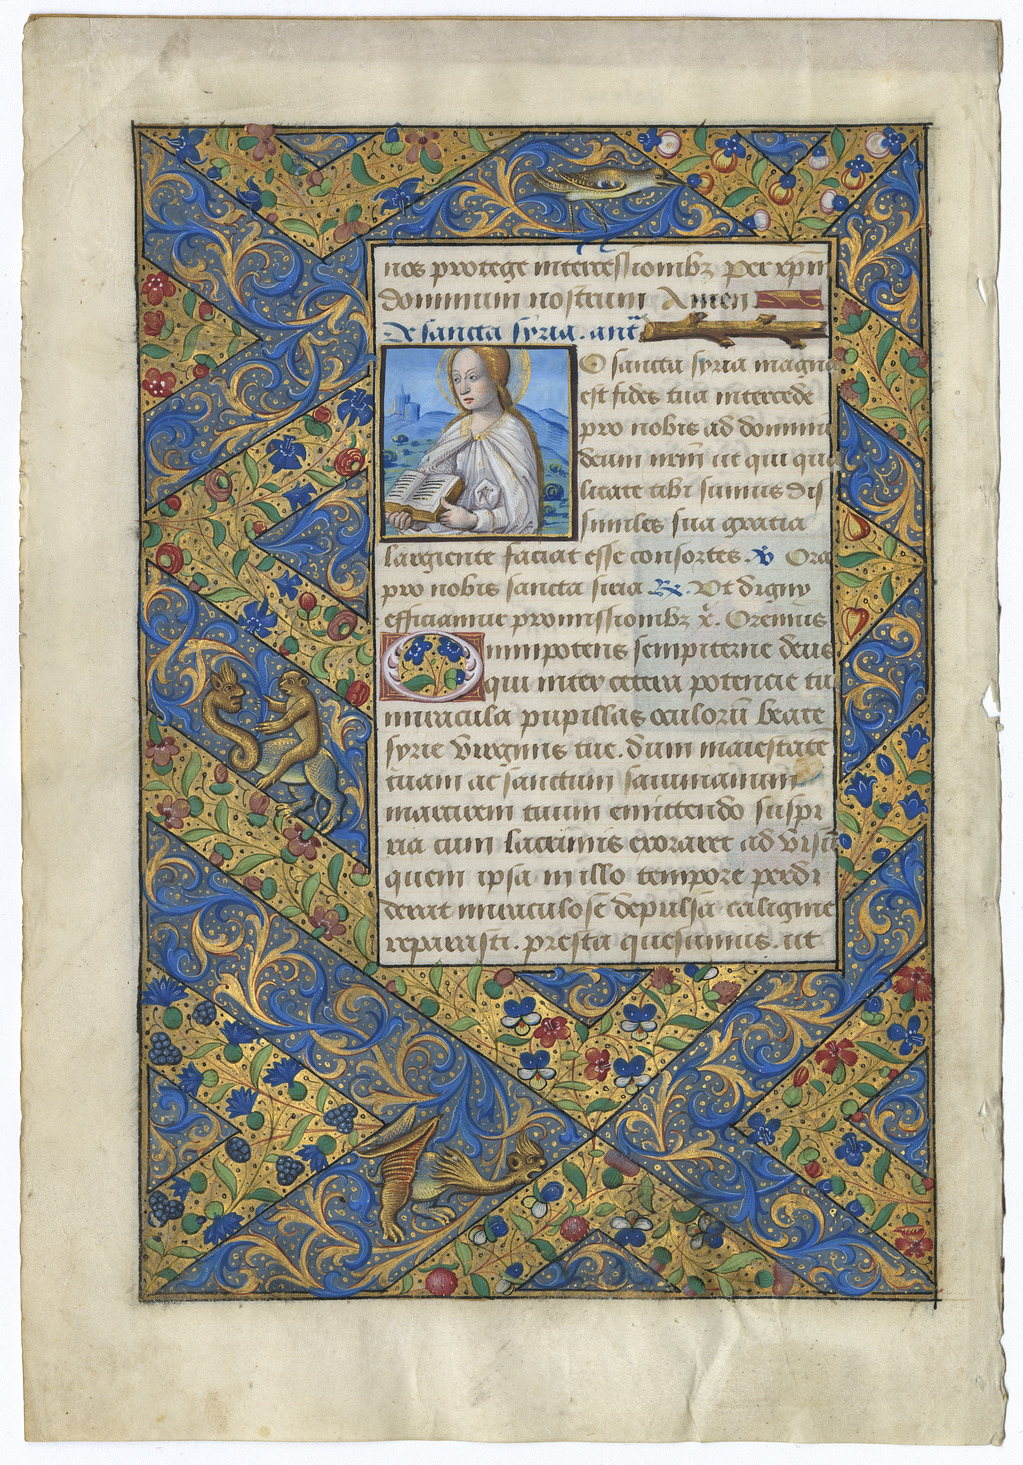 nos protege intercessionibꝫ per xpm
dominum nostrum Amen
De sancta syria. ant
O sancta syria magna
est fides tua intercede
pro nobis ad dominū
deum nrm ut qui qua
litate tibi sumus dis
similes sua gratia
largiente faciat esse consortes. v̄ Ora
pro nobis sancta siria ℞. Vt digny
efficiamur promissionibꝫ x̄. Oremus
Omnipotens sempiterne deus
qui inter cetera potencie tu
miracula pupillas oculorū beate
syrie virginis tue. dum maiestate
tuam ac sanctum
martirem tuum emittendo suspi
ria cum lacrimis exoraret ad visū
quem ipsa in illo tempore perdi
derat miraculose depulsa caligine
reparasti. presta quesumus. ut